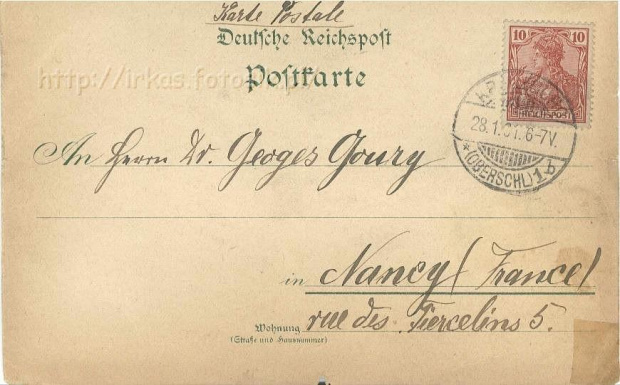 Karte Postale
Deutsche Reichspost
Postkarte
10
REICHSPOST
28.1.01.6-7V.
*(OBERSCHL)1b
An Herrn Dr. Geoges Goury
in Nancy (France)
rue des Tiercelins 5.
Wohnung
(Straße und Hausnummer)